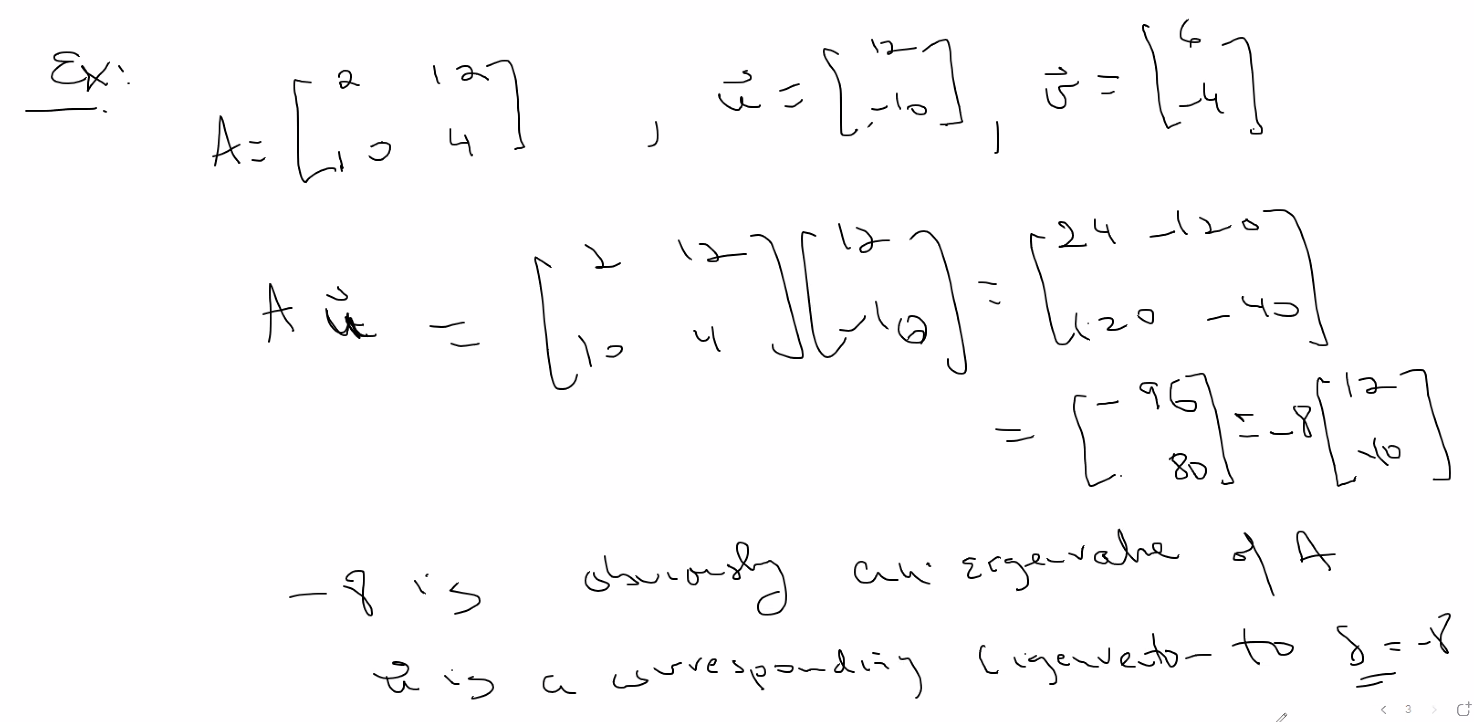 Ex:
A = [2 12; 10 4], u⃗ = [12; -10], v⃗ = [6; -4]
A u⃗ = [2 12; 10 4][12; -10] = [24 -120; 120 -40]
= [-96; 80] = -8[12; -10]
-8 is obviously an eigenvalue of A
u⃗ is a corresponding eigenvector to δ = -8
< 3 >